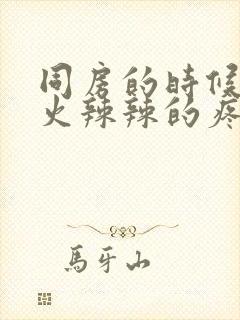 同房的時候
火辣辣的疼
馬牙山